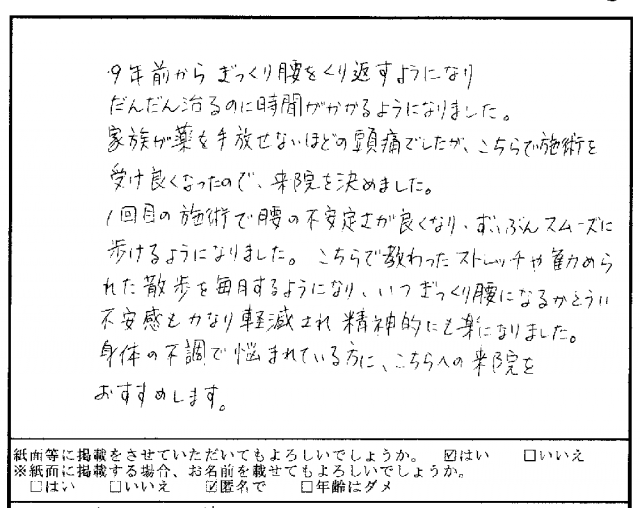 9年前から ぎっくり腰をくり返すようになり
だんだん治るのに時間がかかるようになりました。
家族が薬を手放せないほどの頭痛でしたが、こちらで施術を
受け良くなったので、来院を決めました。
1回目の施術で腰の不安定さが良くなり、ずいぶんスムーズに
歩けるようになりました。 こちらで教わったストレッチや勧められ
れた散歩を毎日するようになり、いつぎっくり腰になるかという
不安感もかなり軽減され 精神的にも楽になりました。
身体の不調で悩まれている方に、こちらへの来院を
おすすめします。
紙面等に掲載をさせていただいてもよろしいでしょうか。 ☑はい □いいえ
※紙面に掲載する場合、お名前を載せてもよろしいでしょうか。
□はい □いいえ ☑匿名で □年齢はダメ